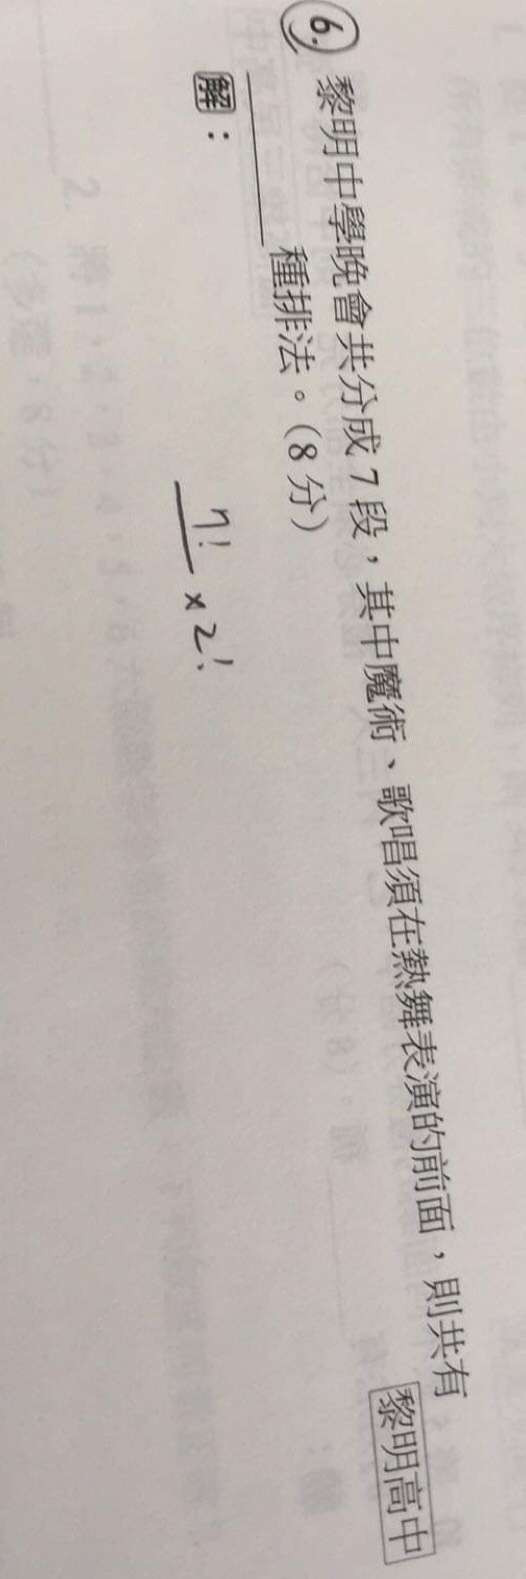 6. 黎明中學晚會共分成7段，其中魔術、歌唱須在熱舞表演的前面，則共有
______種排法。(8分)
黎明高中
解：
7!
× 2!
2.
(8分)